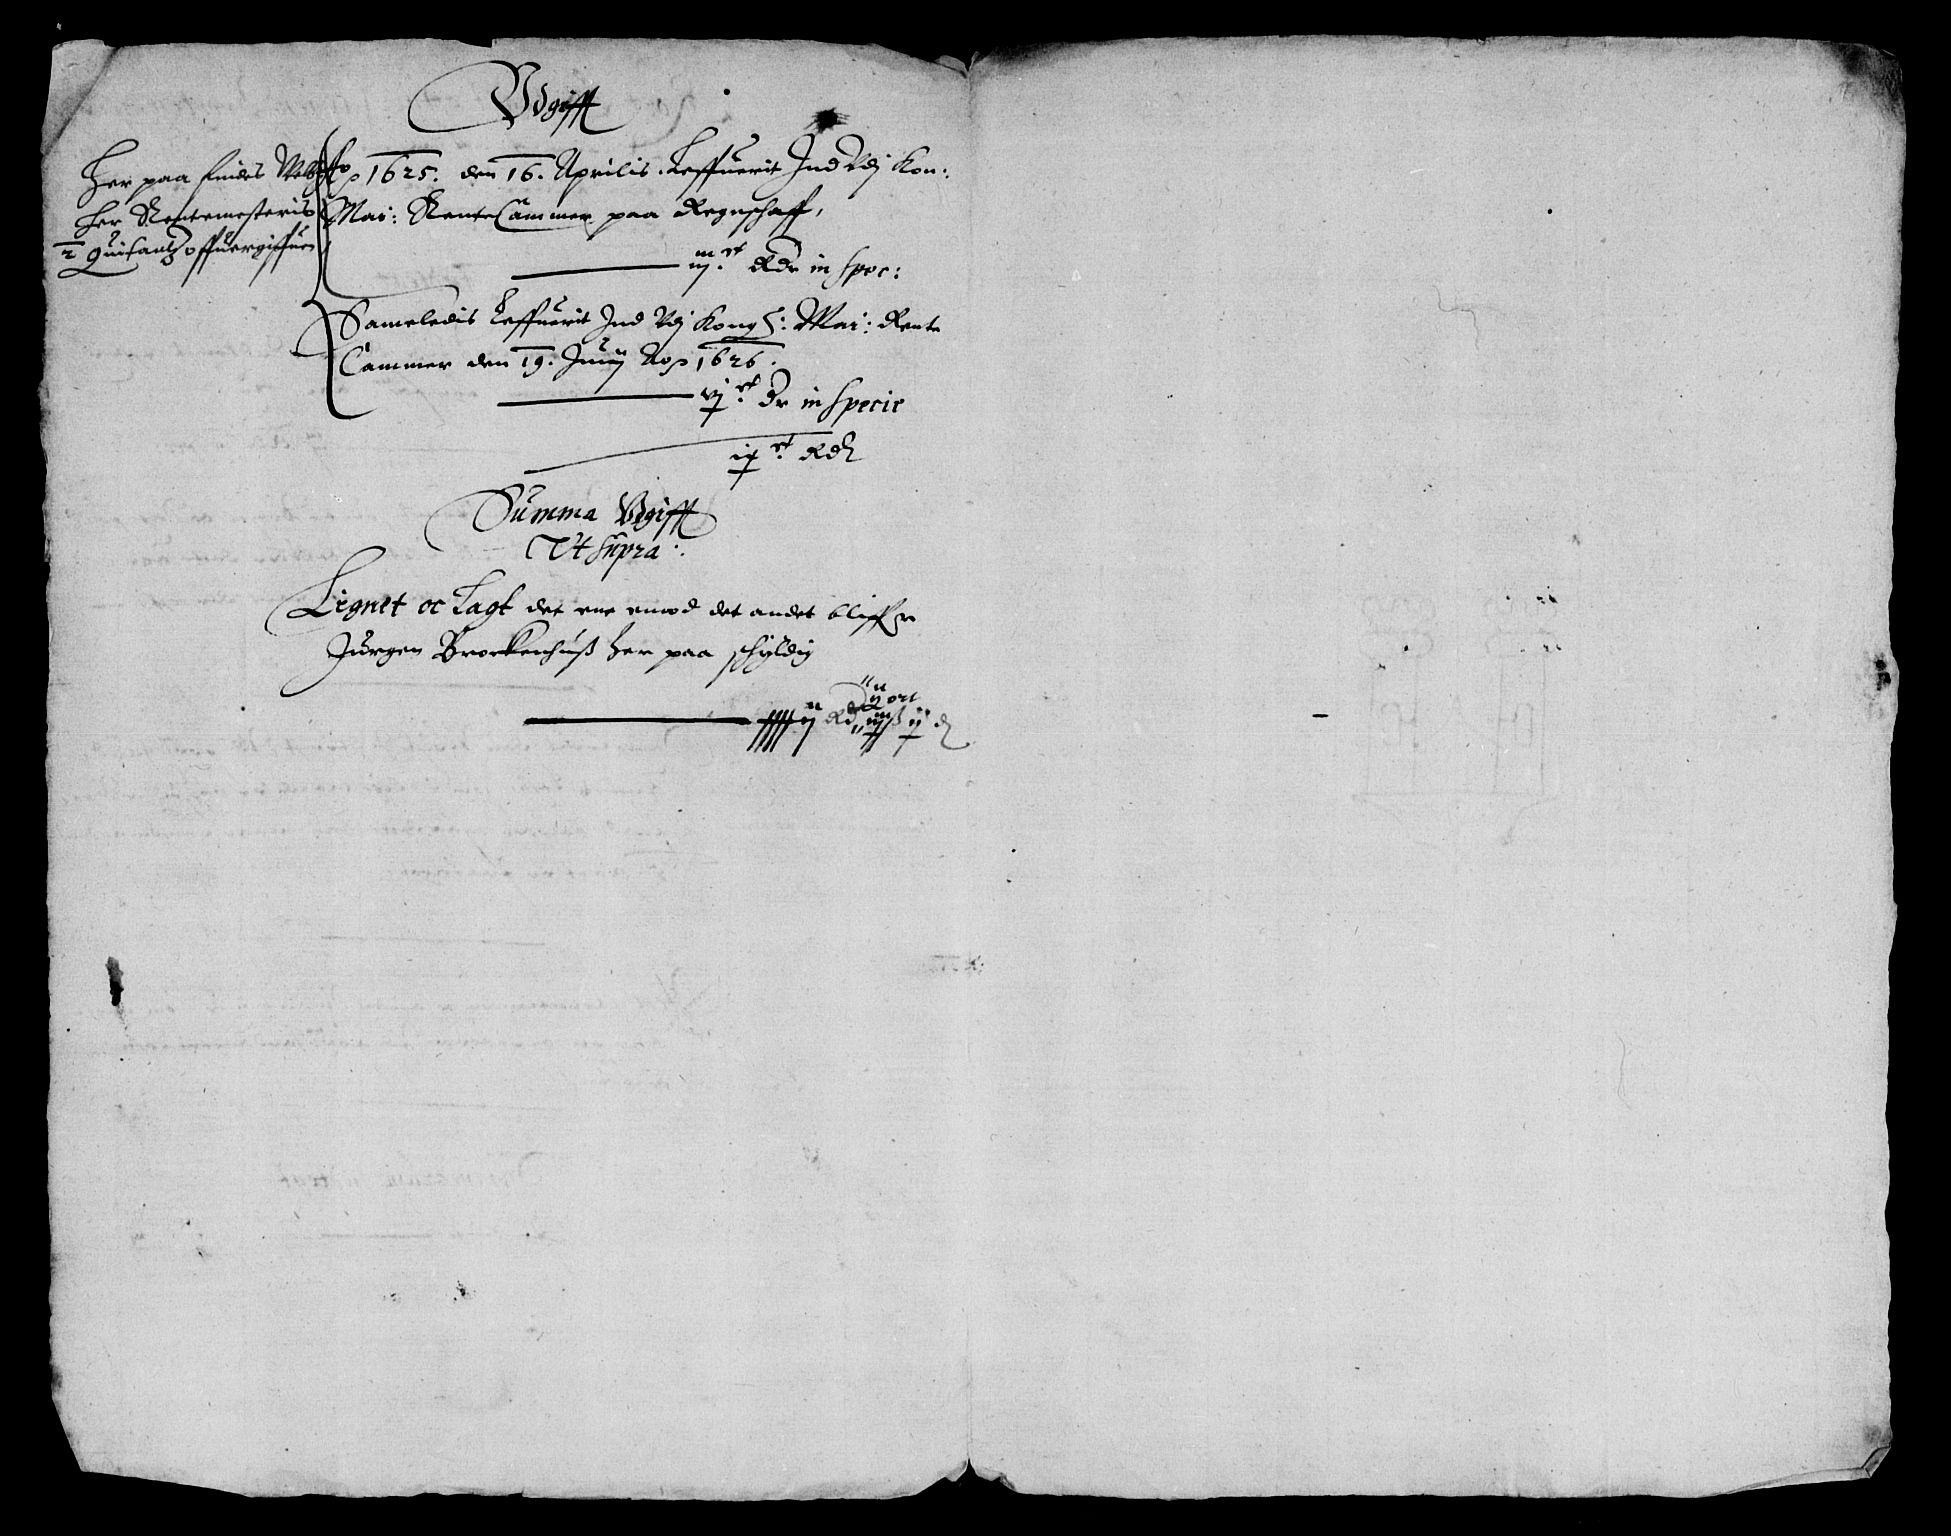 Vdgifft
Her paa findes Welb:
her Rentemesteris
2 Quitantz offuergiffuen
Ao 1625. den 16. Aprilis. Leffuerit Ind Vdj Kon:
Mai: RenteCammer paa Regnschaff,
iijᶜ Rdr in spec:
Sameledis Leffuerit Ind Vdj Kongl: Mai: Rente
Cammer den 19. Junij Ao 1626.
vjᶜ dr in specie
ixᶜ Rdl
Summa Vdgifft
Vt supra:
Lignet oc Lagt det ene emod det andet bliffer
Jurgen Brockenhuß her paa schyldig
ij Rd ij ort ß ij